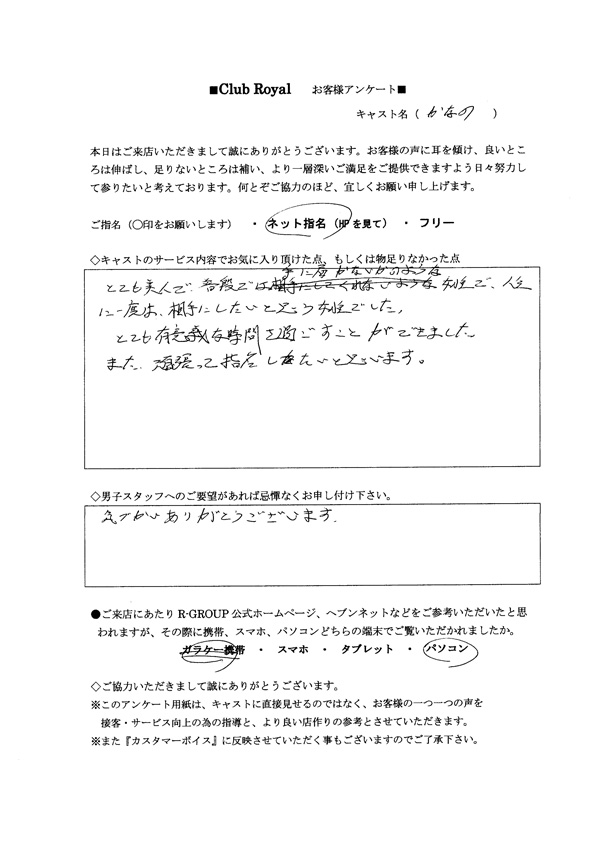 ■Club Royal お客様アンケート■
キャスト名（ かなの ）
本日はご来店いただきまして誠にありがとうございます。お客様の声に耳を傾け、良いとこ
ろは伸ばし、足りないところは補い、より一層深いご満足をご提供できますよう日々努力し
て参りたいと考えております。何とぞご協力のほど、宜しくお願い申し上げます。
ご指名（〇印をお願いします） ・ ネット指名（HPを見て） ・ フリー
◇キャストのサービス内容でお気に入り頂けた点、もしくは物足りなかった点
手に届かないかのような
とても美人で、普段では相手にしてくれないような女性で、人生
に一度は、相手にしたいと思う女性でした。
とても有意義な時間を過ごすことができました
また、頑張って指名したいと思います。
◇男子スタッフへのご要望があれば忌憚なくお申し付け下さい。
気づかいありがとうございます.
●ご来店にあたり R-GROUP 公式ホームページ、ヘブンネットなどをご参考いただいたと思
われますが、その際に携帯、スマホ、パソコンどちらの端末でご覧いただかれましたか。
ガラケー携帯 ・ スマホ ・ タブレット ・ パソコン
◇ご協力いただきまして誠にありがとうございます。
※このアンケート用紙は、キャストに直接見せるのではなく、お客様の一つ一つの声を
接客・サービス向上の為の指導と、より良い店作りの参考とさせていただきます。
※また『カスタマーボイス』に反映させていただく事もございますのでご了承下さい。